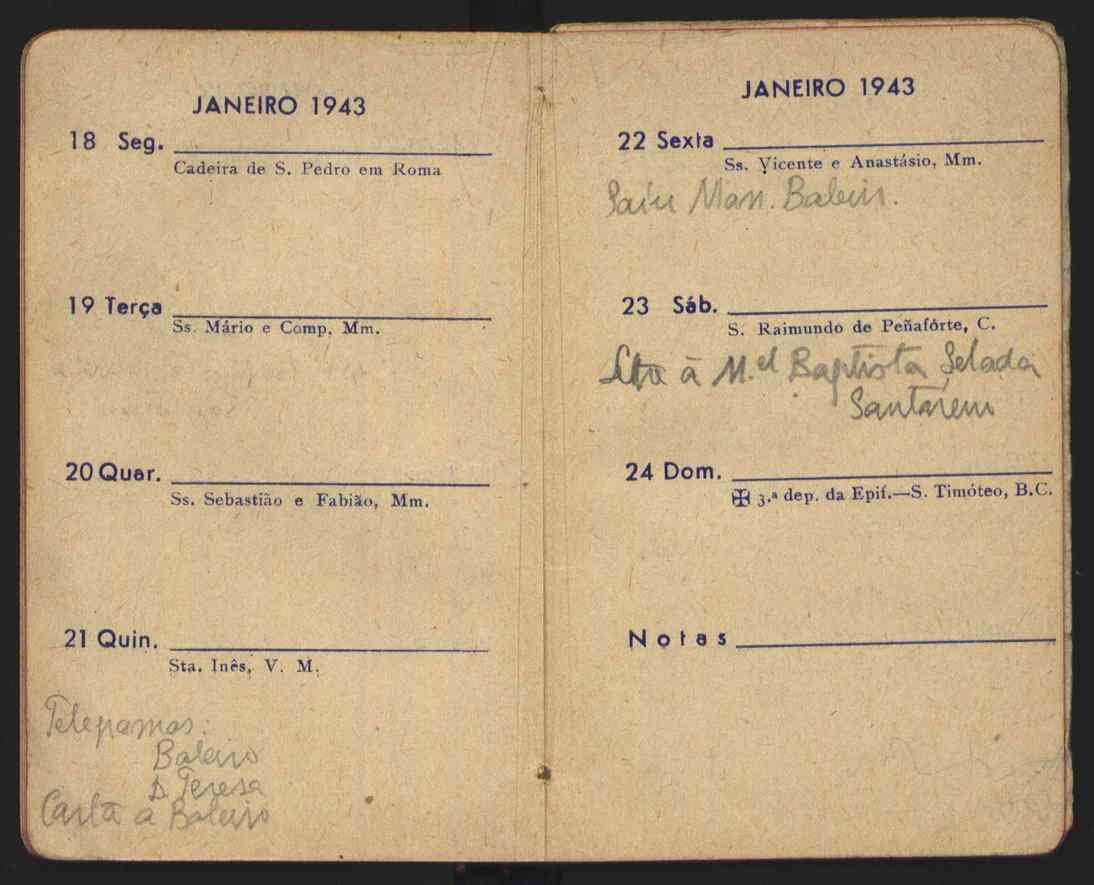 JANEIRO 1943
18 Seg.
Cadeira de S. Pedro em Roma
19 Terça
Ss. Mário e Comp, Mm.
20 Quar.
Ss. Sebastião e Fabião, Mm.
21 Quin.
Sta. Inês, V. M.
Telegramas:
Baleiro
D. Teresa
Carta a Baleiro
JANEIRO 1943
22 Sexta
Ss. Vicente e Anastásio, Mm.
Saíu Man. Baleir.
23 Sáb.
S. Raimundo de Peñafórte, C.
à M.el Baptista Selada
Santarem
24 Dom.
✠ 3.ª dep. da Epif.—S. Timóteo, B.C.
Notas